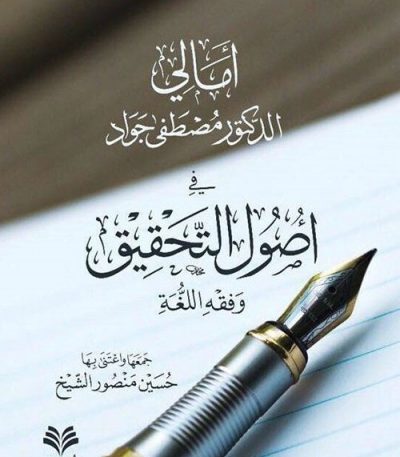 أمالي
الدكتور مصطفى جواد
في
أصول التحقيق
وفقه اللغة
جمعها واعتنى بها
حسين منصور الشيخ